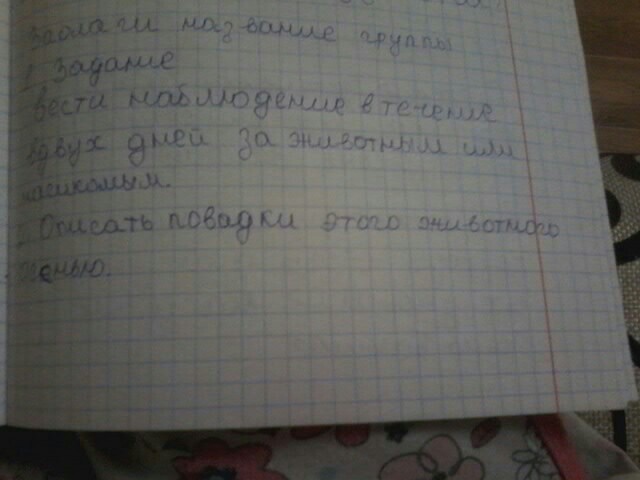 Заолаги название группы
1 Задание
вести наблюдение в течение
двух дней за животным или
насикомым.
Описать повадки этого животного
осенью.